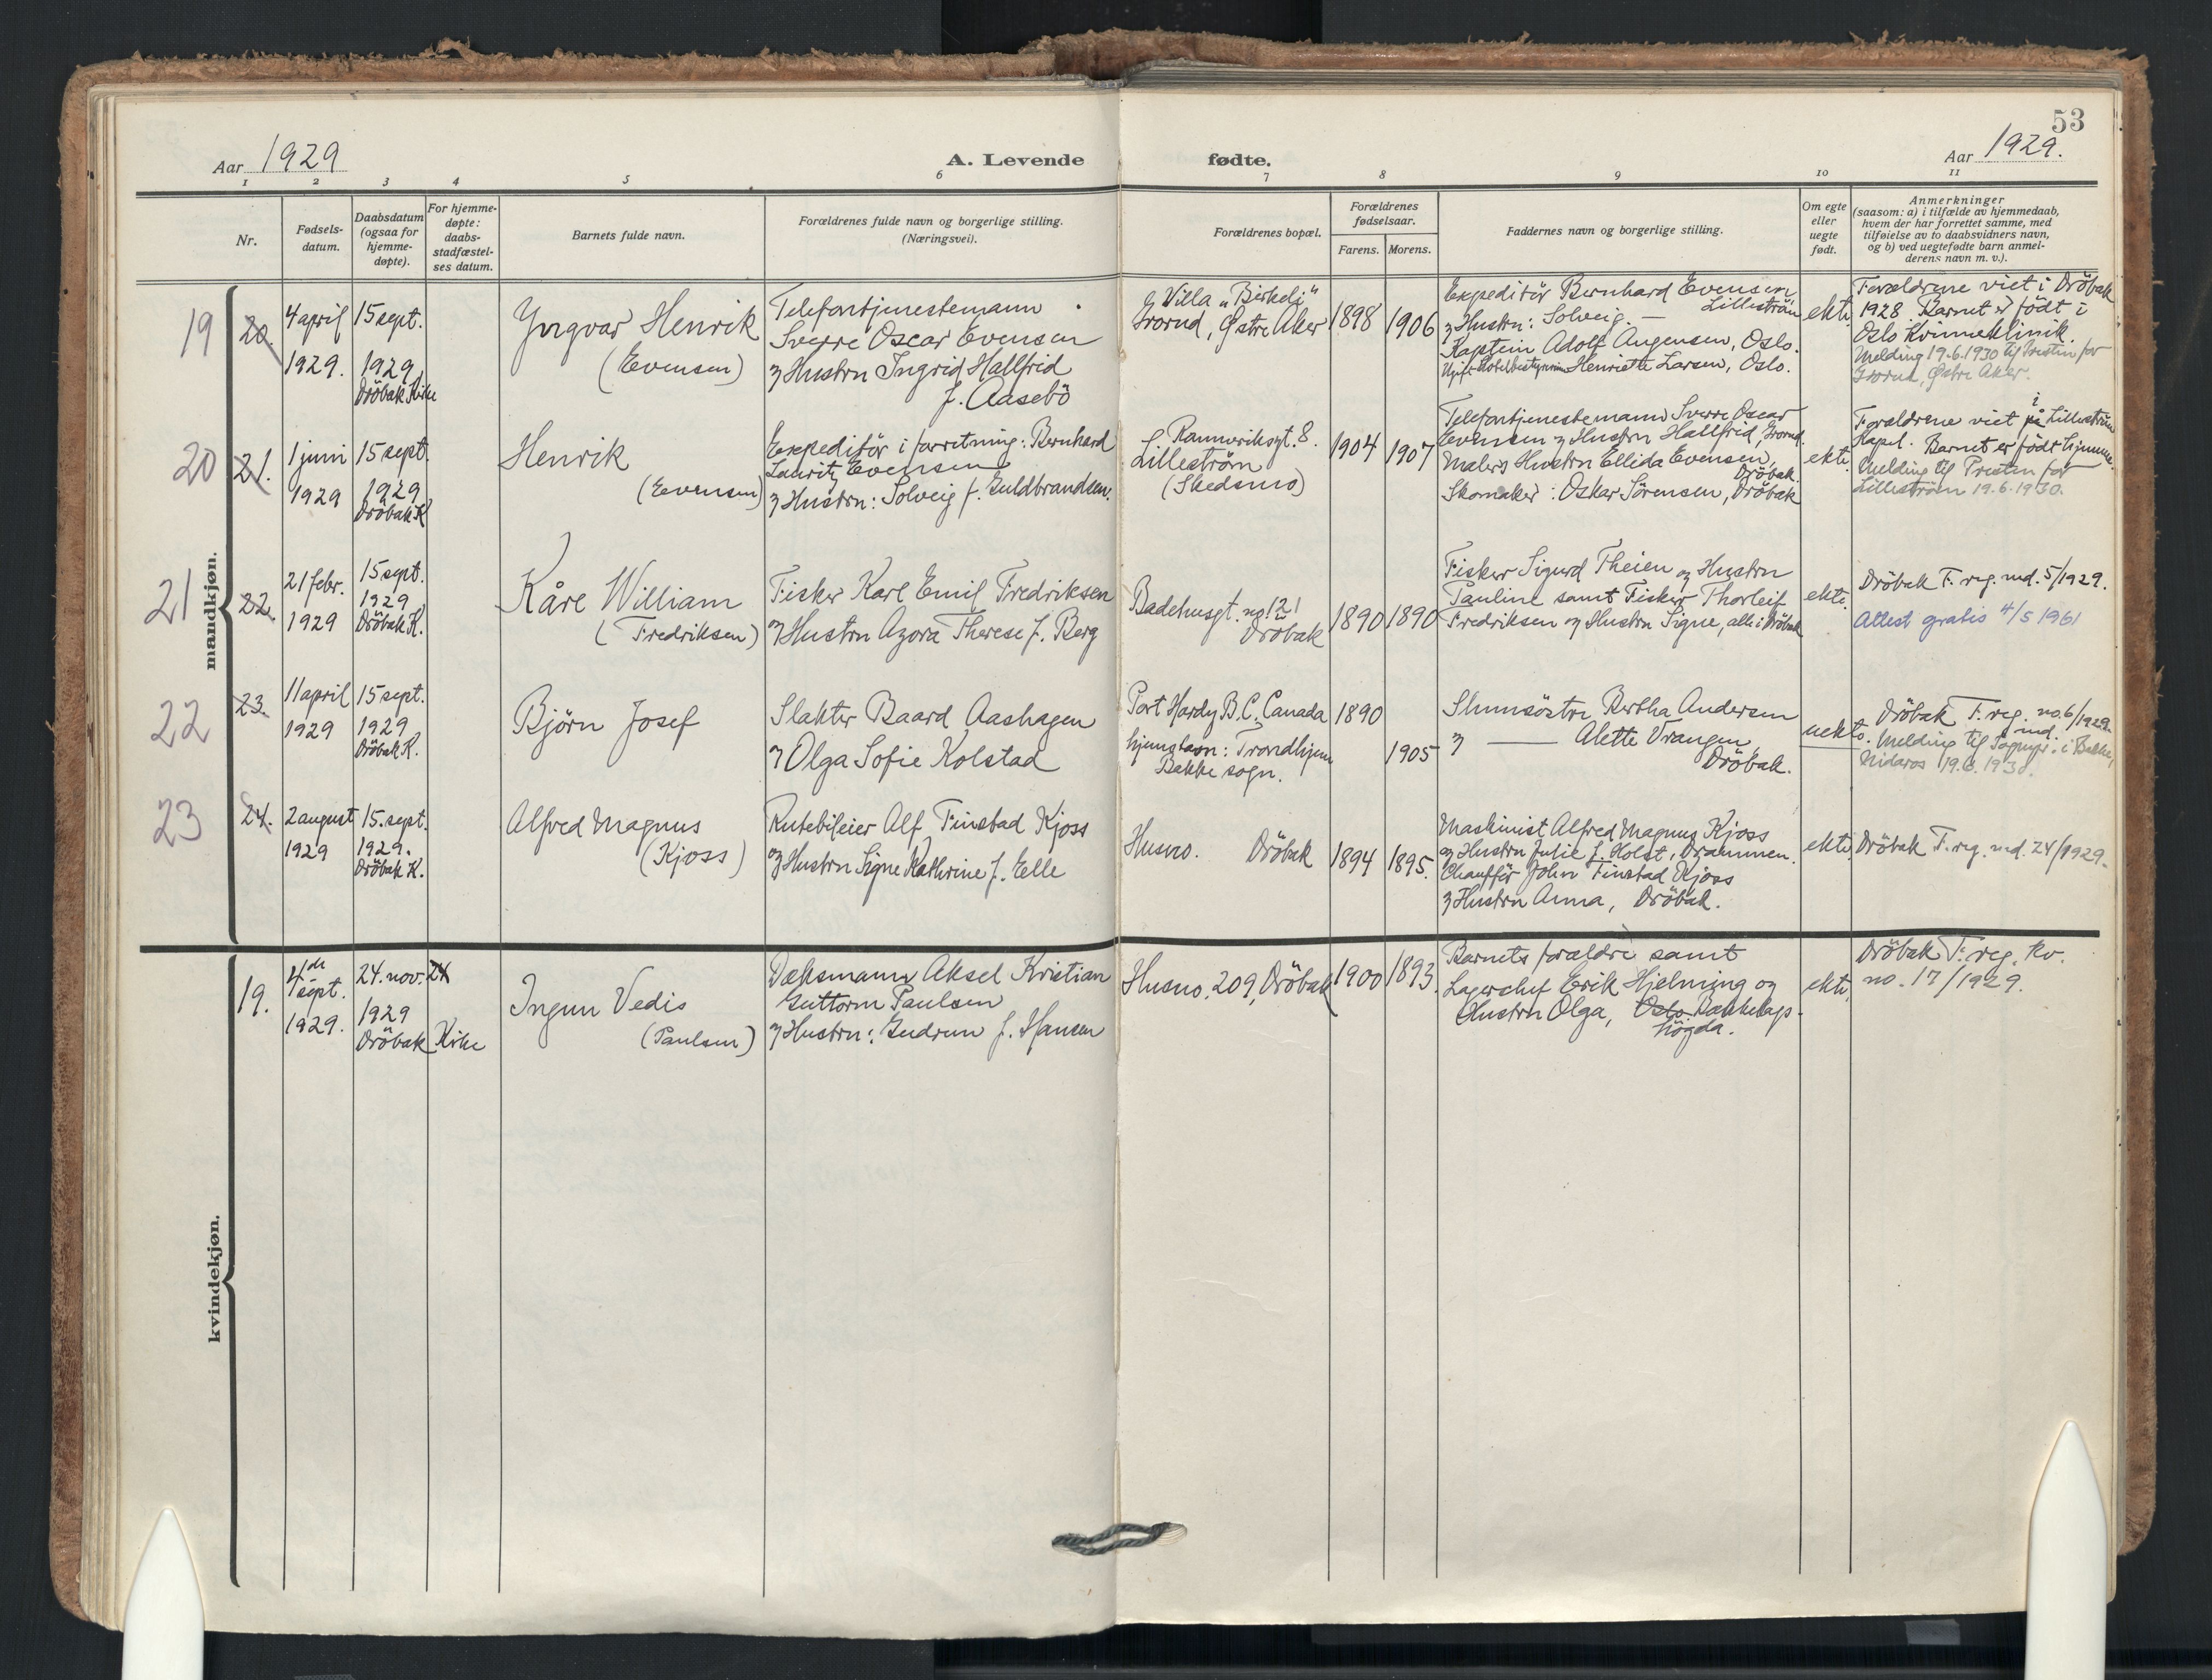 53
Aar 1929
A. Levende
fødte.
Aar 1929.
1 2 3 4 5 6 7 8 9 10 11
Nr.
Fødsels-
datum.
Daabsdatum
(ogsaa for
hjemme-
døpte).
For hjemme-
døpte:
daabs-
stadfæstel-
ses datum.
Barnets fulde navn.
Forældrenes fulde navn og borgerlige stilling.
(Næringsvei).
Forældrenes bopæl.
Forældrenes
fødselsaar.
Farens. Morens.
Faddernes navn og borgerlige stilling.
Om egte
eller
uegte
født.
Anmerkninger
(saasom: a) i tilfælde av hjemmedaab,
hvem der har forrettet samme, med
tilføielse av to daabsvidners navn,
og b) ved uegtefødte barn anmel-
derens navn m. v.).
mandkjøn.
19
20.
4 april
1929.
15 sept.
1929
Dröbak Kirke
Yngvar Henrik
(Evensen)
Telefontjenestemann
Sverre Oscar Evensen
og Hustru Ingrid Hallfrid
f. Aasebö
Villa "Birkeli"
Grorud, Østre Aker
1898
1906
Expeditör Bernhard Evensen
Lilleström
og Hustru: Solveig. —
Kaptein Adolf Augensen, Oslo.
Ugift Hotelbestyrerinne Henriette Larsen, Oslo.
ekte.
Forældrene viet i Dröbak
1928. Barnet er födt i
Oslo Kvinneklinik.
Melding 19.6.1930 til Presten for
Grorud, Østre Aker.
20
21.
1 juni
1929
15 sept.
1929
Dröbak K
Henrik
(Evensen)
Expeditör i forretning: Bernhard
Lauritz Evensen
og Hustru: Solveig f. Guldbrandsen.
Romeriksgt. 8.
Lilleström
(Skedsmo)
1904
1907
Telefontjenestemann Sverre Oscar
Evensen og Hustru Hallfrid, Grorud.
Malers Hustru Ellida Evensen,
Dröbak.
Skomaker: Oskar Sörensen, Dröbak
ekte.
i
Forældrene viet på Lilleström
Kapel. Barnet er födt hjemme.
Melding til Presten for
Lilleström 19.6.1930.
21
22.
21 febr.
1929
15 sept.
1929
Dröbak K.
Kåre William
(Fredriksen)
Fisker Karl Emil Fredriksen
og Hustru Azora Therese f. Berg
Badehusgt. no 121
Dröbak
1890
1890
Fisker Sigurd Theien og Hustru
Pauline samt Fisker Thorleif
Fredriksen og Hustru Signe, alle i Dröbak
ekte.
Dröbak F. reg. md. 5/1929.
Attest gratis 4/5 1961
22
23.
11 april
1929
15 sept.
1929
Dröbak K.
Björn Josef
Slakter Baard Aashagen
og Olga Sofie Kolstad
Port Hardy B.C. Canada
hjemstavn: Trondhjem
Bakke sogn.
1890
1905
Skumsöstre Bertha Andersen
og — Alette Vrangen,
Dröbak.
uekte.
Dröbak F. reg. no. 6/1929
md.
Melding til Sognepr. i Bakke,
Nidaros 19.6.1930.
23
24.
2 august
1929
15. sept.
1929.
Dröbak K.
Alfred Magnus
(Kjoss)
Rutebileier Alf Finstad Kjoss
og Hustru Signe Kathrine f. Elle
Husno. Dröbak
1894
1895.
Maskinist Alfred Magnus Kjoss
og Hustru Julie f. Holst, Drammen.
Chaufför John Finstad Kjoss
og Hustru Anna, Dröbak.
ekte
Dröbak F. reg. md. 24/1929.
kvindekjøn.
19.
4de
sept.
1929.
24. nov. 24
1929
Dröbak Kirke
Ingun Vedis
(Paulsen)
Dæksmann Aksel Kristian
Guttorm Paulsen
og Hustru: Gudrun f. Hansen
Husno. 209, Dröbak
1900
1893.
Barnets forældre samt
Lagerchef Erik Hjelming og
Hustru Olga, Oslo Bækkelags-
högda.
ekte.
Dröbak F. reg. kv.
no. 17/1929.